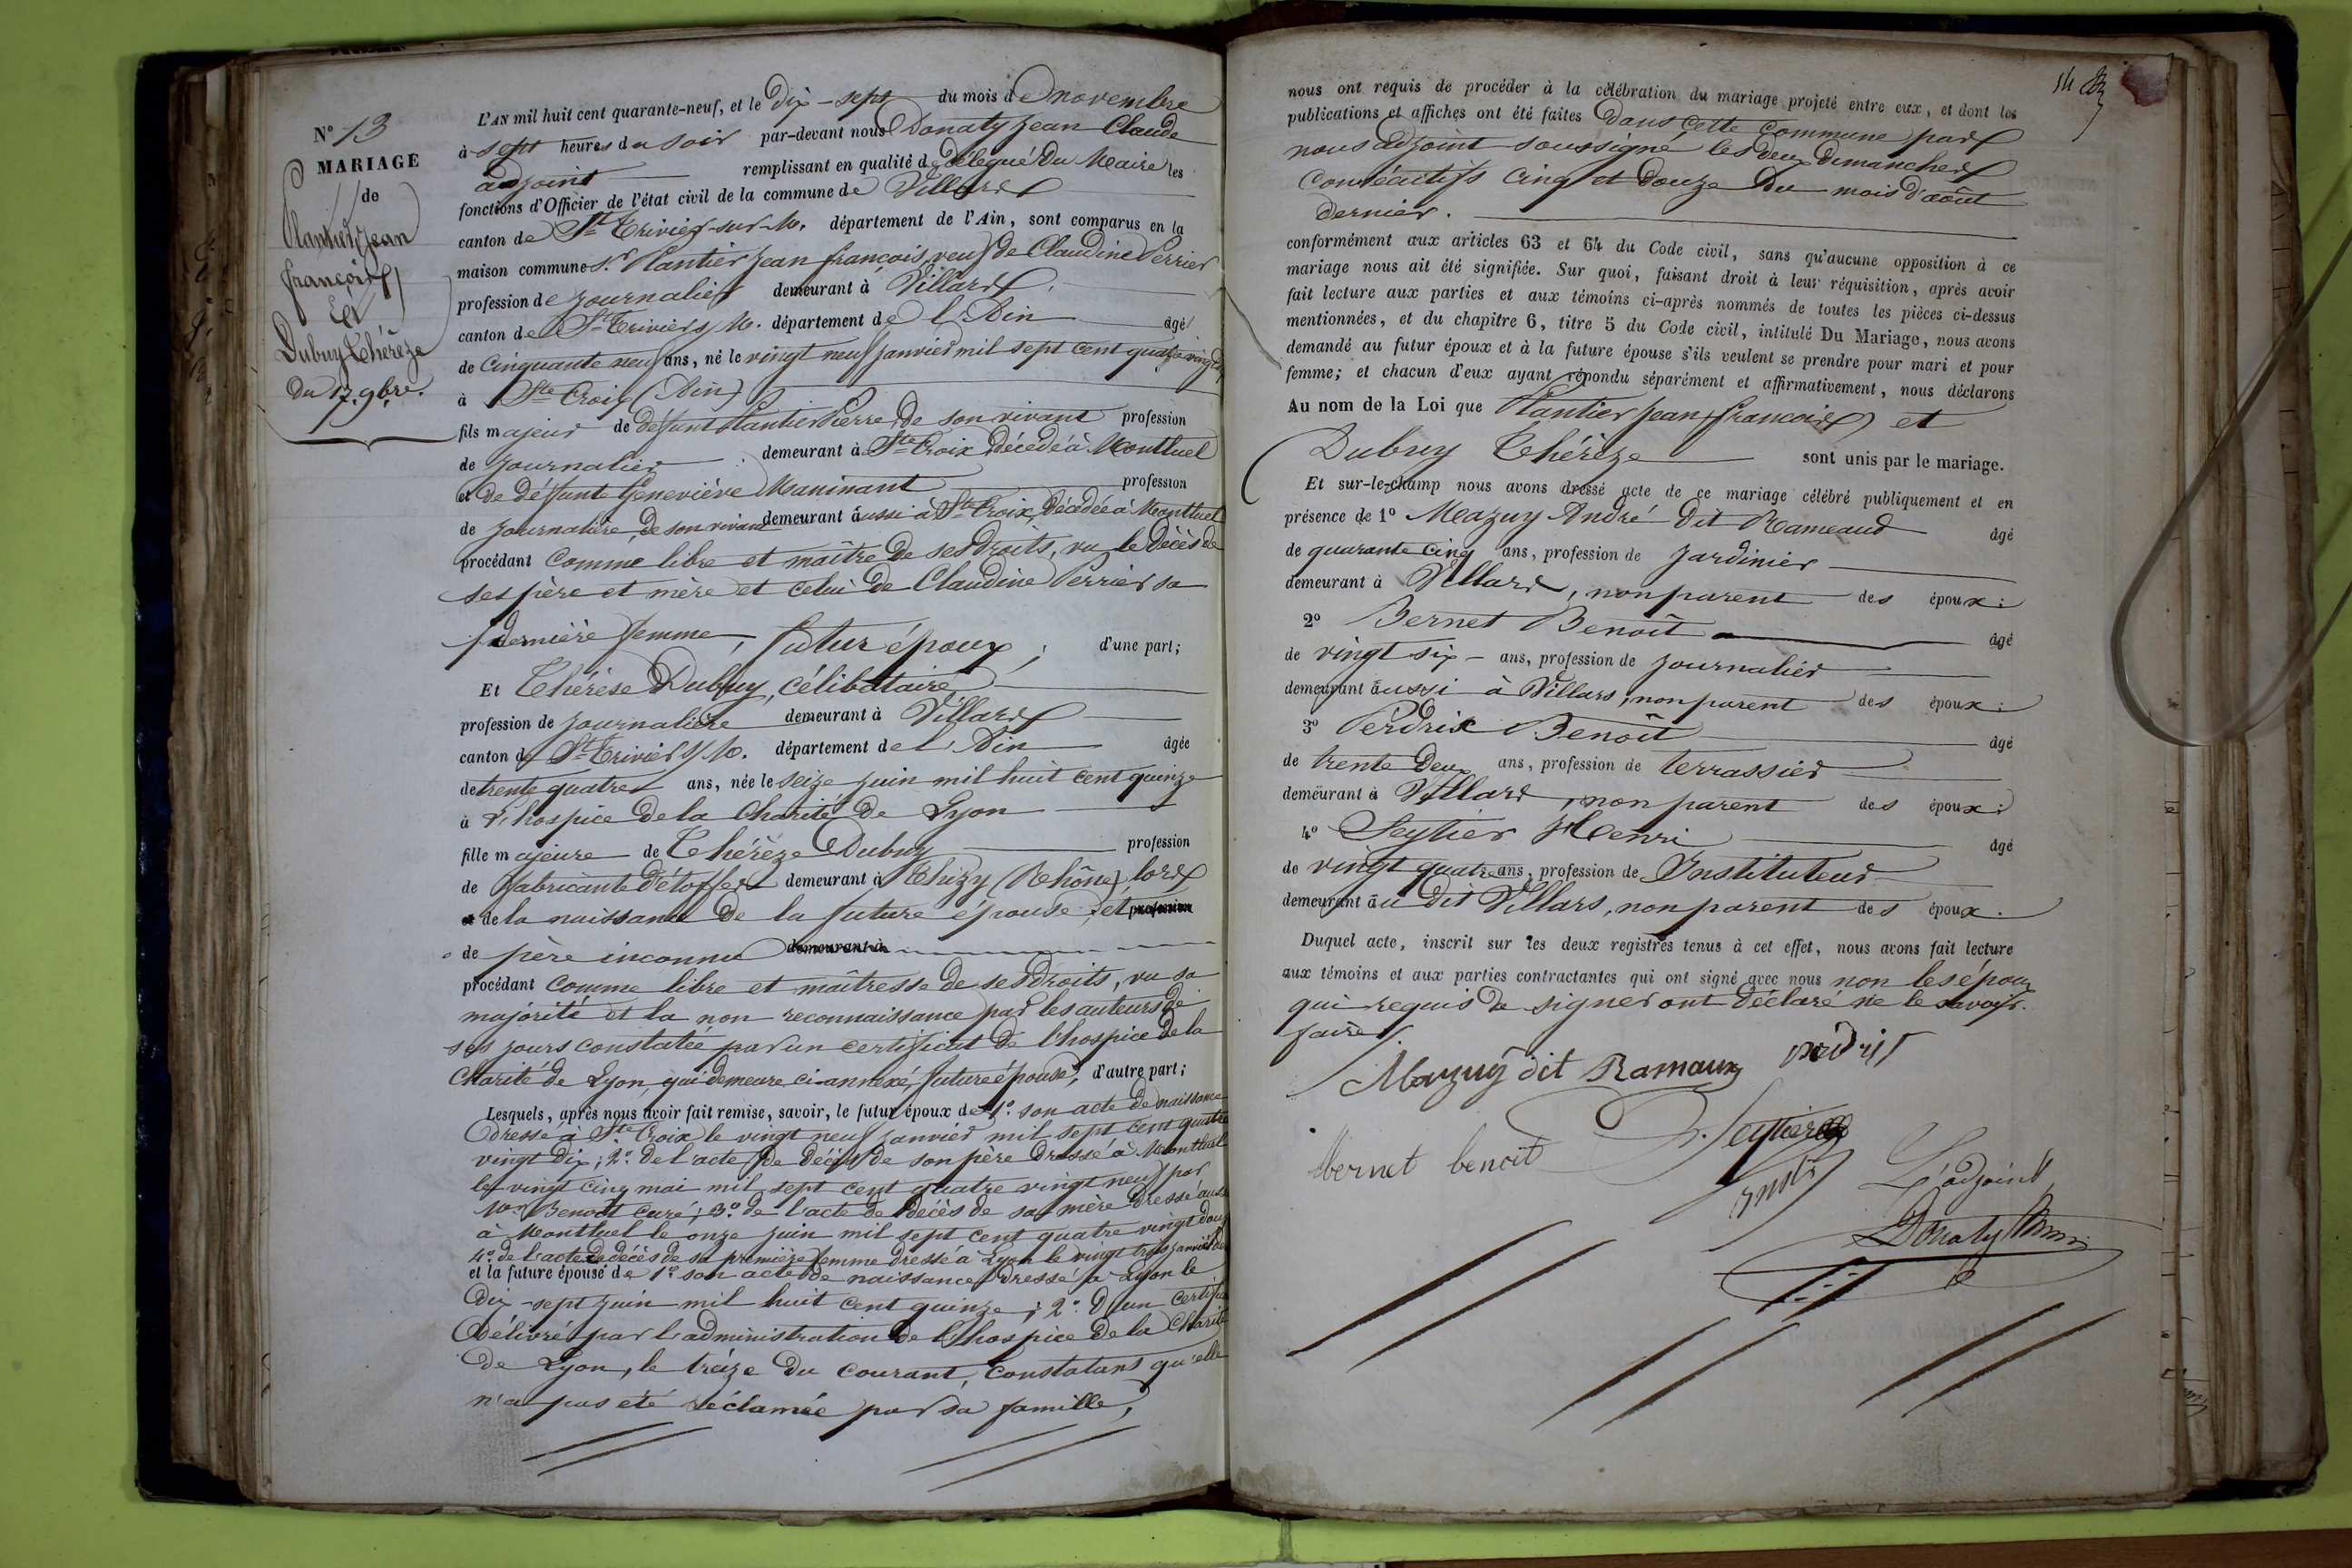 N° 13
MARIAGE
de
Plantier Jean
françois
Et
Dubuy Thérèze
Du 17. 9bre.
L'AN mil huit cent quarante-neuf, et le Dix-sept du mois de novembre
à sept heures du soir par-devant nous Donaty Jean Claude
adjoint remplissant en qualité de délégué du Maire les
fonctions d'Officier de l'état civil de la commune de Villars
canton de St Trivier-sur-M. département de l'Ain, sont comparus en la
maison commune Sr. Plantier Jean françois, veuf de Claudine Perrier
profession de journalier demeurant à Villars,
canton de St Trivier s/ M. département de l'Ain âgé
de cinquante neuf ans, né le vingt neuf janvier mil sept cent quatre vingt dix
à Ste Croix (Ain)
fils majeur de défunt Plantier Pierre, de son vivant profession
de journalier demeurant à Ste Croix, décédé à Montluel
et de défunte Geneviève Maninant profession
de journalière, de son vivant demeurant aussi à Ste Croix, décédée à Montluel
procédant comme libre et maître de ses droits, vu le décès de
ses père et mère et celui de Claudine Perrier sa
dernière femme, futur époux, d'une part;
Et Thérèse Dubuy, célibataire
profession de journalière demeurant à Villars
canton de St Trivier s/ M. département de l'Ain âgée
de trente quatre ans, née le seize juin mil huit cent quinze
à l'hospice de la Charité de Lyon
fille majeure de Thérèze Dubuy profession
de fabricante d'étoffes demeurant à Thizy (Rhône) lors
et de la naissance de la future épouse, et profession
de père inconnu demeurant à
procédant comme libre et maîtresse de ses droits, vu sa
majorité et la non reconnaissance par les auteurs de
ses jours constatée par un certificat de l'hospice de la
Charité de Lyon, qui demeure ci-annexé, future épouse, d'autre part;
Lesquels, après nous avoir fait remise, savoir, le futur époux de 1°. son acte de naissance
dressé à Ste Croix le vingt neuf janvier mil sept cent quatre
vingt dix; 2°. de l'acte de décès de son père dressé à Montluel
le vingt cinq mai mil sept cent quatre vingt neuf par
Mr. Benoit curé; 3°. de l'acte de décès de sa mère dressé aussi
à Montluel le onze juin mil sept cent quatre vingt douze
4°. de l'acte de décès de sa première femme dressé à Lyon le vingt trois janvier
et la future épouse de 1°. son acte de naissance dressé à Lyon le
dix-sept juin mil huit cent quinze; 2°. D'un certificat
délivré par l'administration de l'hospice de la Charité
de Lyon, le treize du courant, constatant qu'elle
n'a pas été réclamée par sa famille,
14
nous ont requis de procéder à la célébration du mariage projeté entre eux, et dont les
publications et affiches ont été faites dans cette commune par
nous adjoint soussigné les deux dimanches
consécutifs cinq et douze du mois d'août
dernier.
conformément aux articles 63 et 64 du Code civil, sans qu'aucune opposition à ce
mariage nous ait été signifiée. Sur quoi, faisant droit à leur réquisition, après avoir
fait lecture aux parties et aux témoins ci-après nommés de toutes les pièces ci-dessus
mentionnées, et du chapitre 6, titre 5 du Code civil, intitulé Du Mariage, nous avons
demandé au futur époux et à la future épouse s'ils veulent se prendre pour mari et pour
femme; et chacun d'eux ayant répondu séparément et affirmativement, nous déclarons
Au nom de la Loi que Plantier Jean françois et
Dubuy Thérèze sont unis par le mariage.
Et sur-le-champ nous avons dressé acte de ce mariage célébré publiquement et en
présence de 1° Mazuy André dit Rameaud âgé
de quarante cinq ans, profession de jardinier
demeurant à Villars, non parent des époux:
2° Bernet Benoît âgé
de vingt six ans, profession de journalier
demeurant aussi à Villars, non parent des époux:
3° Perdrix Benoît âgé
de trente deux ans, profession de terrassier
demeurant à Villars, non parent des époux:
4° Seytier Henri âgé
de vingt quatre ans, profession de Instituteur
demeurant au dit Villars, non parent des époux.
Duquel acte, inscrit sur les deux registres tenus à cet effet, nous avons fait lecture
aux témoins et aux parties contractantes qui ont signé avec nous non les époux
qui requis de signer ont déclaré ne le savoir
faire
Mazuy dit Ramaux
Bernet benoit
h. Seytier
instr
L'adjoint,
Donaty